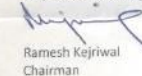 Ramesh Kejriwal
Chairman